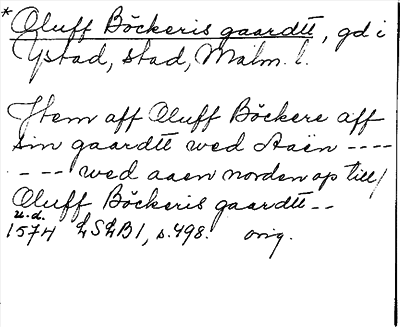 * Oluff Böckeris gaardtt, gd i
Ystad, stad, Malm. l.
Item aff Oluff Böckere aff
sin gaardtt wed Aaën ----
- --- wed aaen norden op till/
Oluff Böckeris gaardtt--
u.d.
1574 LSLB1, s.498. orig.